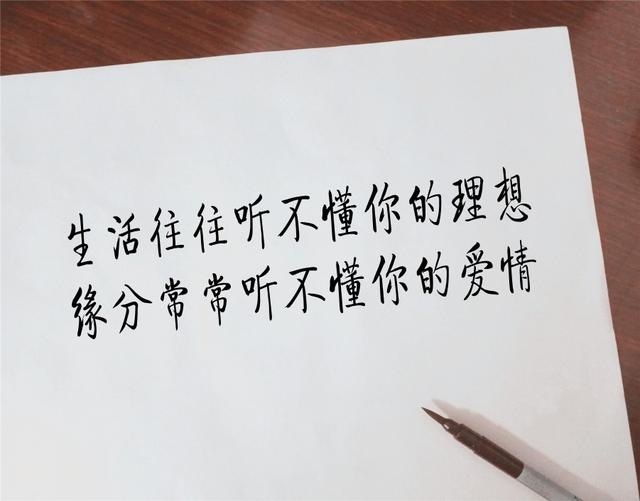 生活往往听不懂你的理想
缘分常常听不懂你的爱情